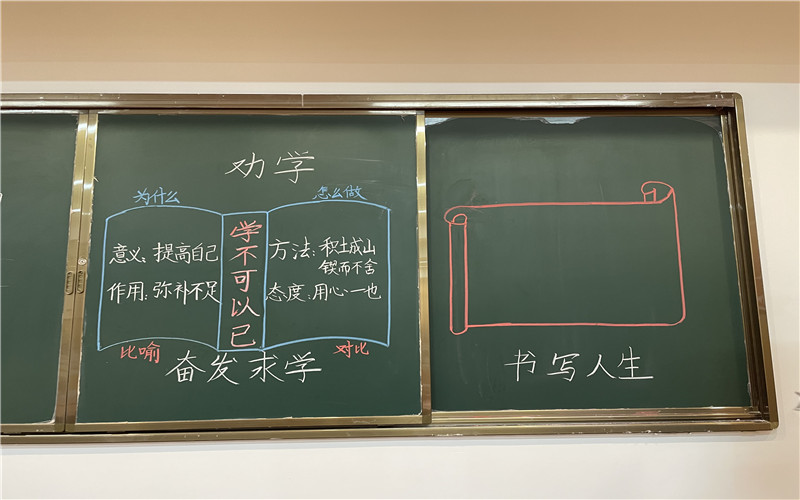 劝学
为什么
怎么做
意义：提高自己
作用：弥补不足
学不可以已
方法：积土成山
锲而不舍
态度：用心一也
比喻
对比
奋发求学
书写人生